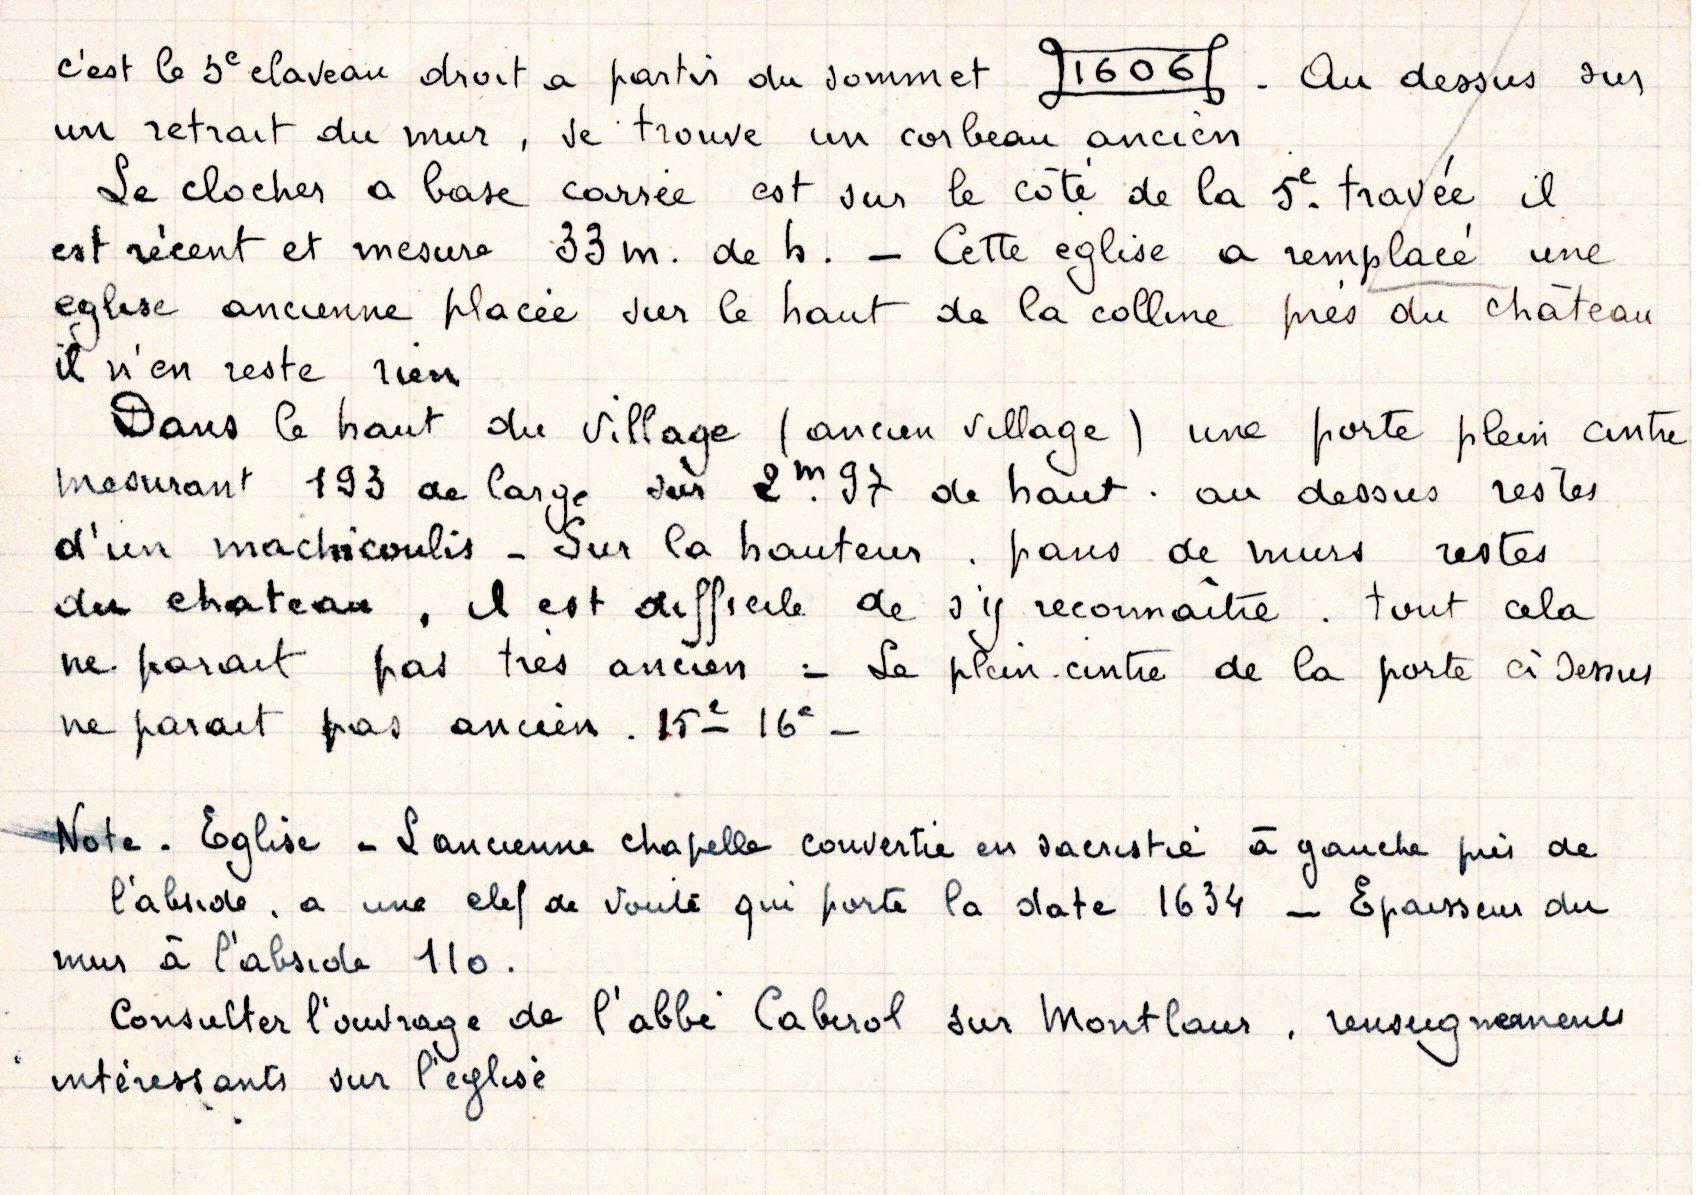 c'est le 3e claveau droit a partir du sommet 1606 - Au dessus sur
un retrait du mur, se trouve un corbeau ancien
Le clocher a base carrée est sur le côté de la 5e travée il
est récent et mesure 33 m. de h. - Cette eglise a remplacé une
eglise ancienne placée sur le haut de la colline près du château
il n'en reste rien
Dans le haut du village (ancien village) une porte plein cintre
mesurant 193 de large sur 2m.97 de haut. au dessus restes
d'un machicoulis - Sur la hauteur. pans de murs restes
du chateau, il est difficile de s'y reconnaître. tout cela
ne parait pas très ancien = Le plein-cintre de la porte ci dessus
ne parait pas ancien. 15e - 16e -
Note. Eglise - L'ancienne chapelle convertie en sacristie à gauche près de
l'abside, a une clef de voute qui porte la date 1634 - Epaisseur du
mur à l'abside 110.
Consulter l'ouvrage de l'abbé Cabirol sur Montlaur, renseignements
intéressants sur l'église